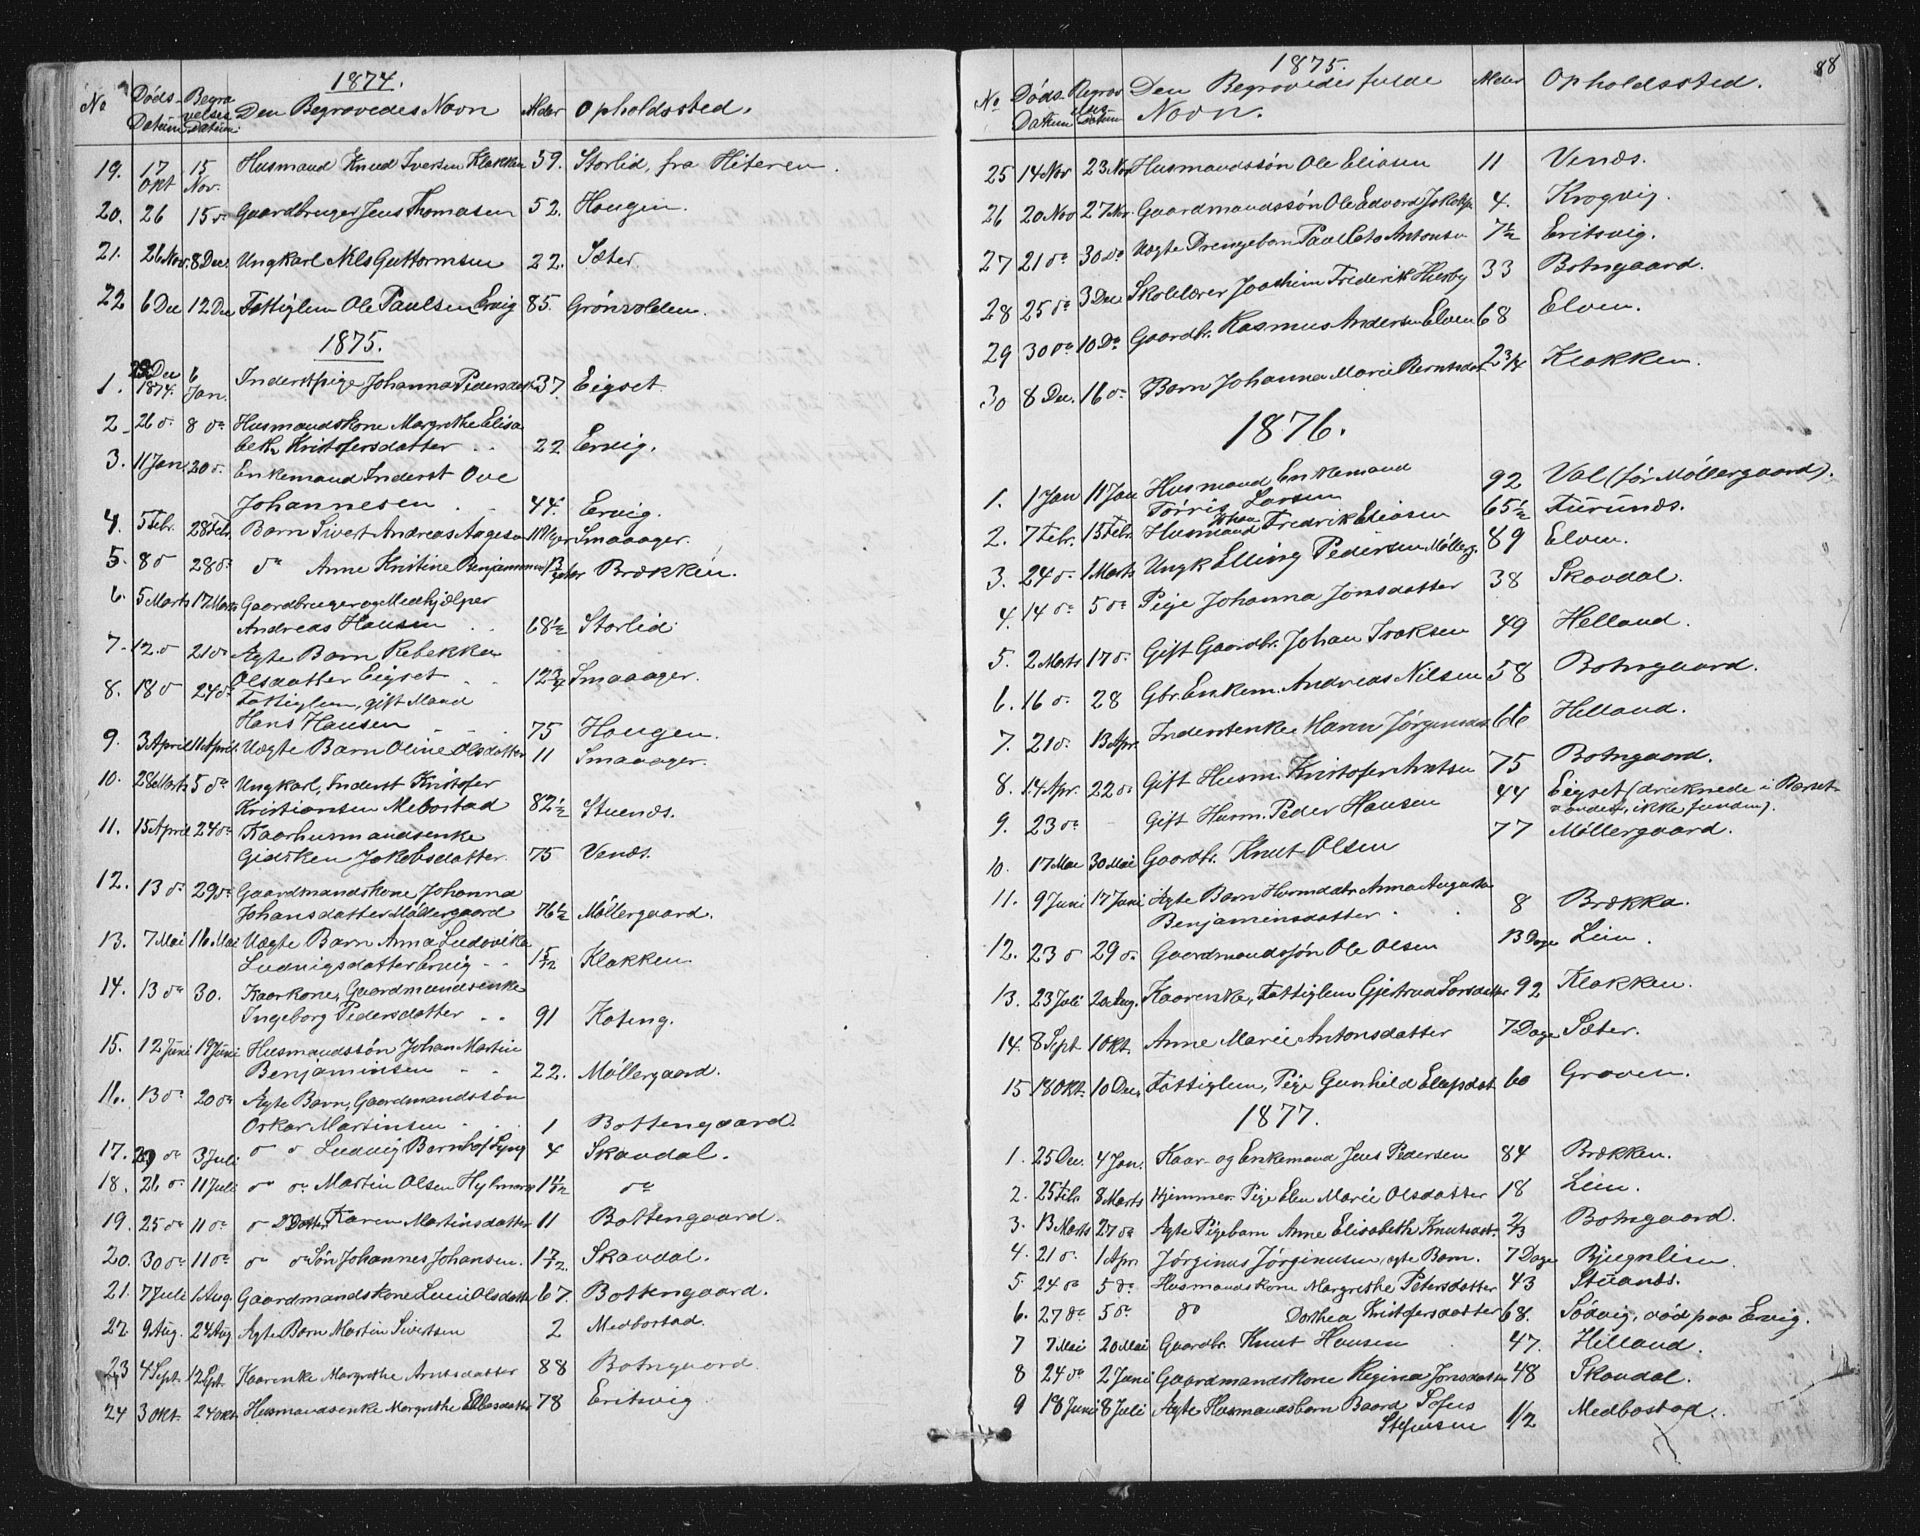 1874.
No Døds-Datum Begravelses Datum Den Begravedes Navn Alder Opholdssted.
19. 17 Okt 15 Nov. Husmand Knud Iversen Klakken 59. Storlid, fra Hiteren.
20. 26 15 do Gaardbruger Jens Thomasen 52. Hougin.
21. 26 Nov. 8 Dec. Ungkarl Nils Guttormsen 22. Sæter.
22 6 Dec 12 Dec Fattiglem Ole Paulsen Ervig 85. Grønvolden.
1875.
1. 29 Dec 1874. 6 Jan. Inderstpige Johanna Pedersdatter 37. Eigset.
2 26 do 8 do Husmandskone Margrethe Elisa
beth Kristofersdatter 22 Ervig.
3. 11 Jan 20 do Enkemand Inderst Ove
Johannesen 44. Ervig.
4. 5 Febr. 28 Febr. Barn Sivert Andreas Aagesen Smaaager.
5. 8 do 28 do do Anne Kristine Brækken.
6. 5 Marts 17 Marts Gaardbruger og Medhjælper
Andreas Hansen 68 1/2 Storlid
7. 12 do 21 do Ægte Barn Rebekka
Olsdatter Eigset 12 3/4 Smaaager.
8. 18 do 24 do Fattiglem, gift Mand
Hans Hansen 75 Hougen.
9. 3 April 11 April Uægte Barn Oline Olsdatter 11 Smaaager.
10. 28 Marts 5 do Ungkarl, Inderst Kristofer
Kristiansen Mebostad 82 1/2 Stuenes.
11. 15 April 24 do Kaarhusmandsenke
Gidsken Jakobsdatter. 75 Venæs.
12. 13 do 29 do Gaardmandskone Johanna
Johansdatter Møllergaard 76 1/2 Møllergaard.
13. 7 Mai 16 Mai Uægte Barn Anna Ludovika
Ludvigsdatter Ervig 1 5/12 Klakken
14. 13 do 30. Kaarkone, Gaardmandsenke
Ingeborg Pedersdatter 91 Koteng.
15. 12 Juni 19 Juni Husmandssøn Johan Martin
Benjaminsen 22. Møllergaard.
16. 13 do 20 do Ægte Barn, Gaardmandssøn
Oskar Martinsen 1 Bottengaard.
17. 20 do 3 Juli do do Ludvig 4 Skavdal.
18. 26 do 11 Juli do do Martin Olsen 1 11/12 do
19. 25 do 11 do do Datter Karen Martinsdatter 11 Bottengaard.
20. 30 do 11 do do do Søn Johannes Johansen. 1 7/12. Skavdal.
21. 7 Juli 1 Aug. Gaardmandskone Olsdatter 67. Bottengaard.
22 9 Aug. 24 Aug Ægte Barn Martin Sivertsen 2 Medbostad.
23 4 Sept. 12 Sept. Kaarenke Margrethe Arntsdatter 88 Botngaard.
24 3 Okt. 24 Okt. Husmandsenke Margrethe 78 Eritsvig.
88
1875.
No Døds-Datum Begravelses Datum Den Begravedes fulde Navn. Alder Opholdssted.
25 14 Nov 23 Nov Husmandssøn Ole Eliasen 11 Venæs.
26 20 Nov 27 Nov. Gaardmandssøn Ole Edvard 4. Krogvig.
27 21 do 30 do Uægte Drengebarn Paul Antonsen 7 1/2 Eritsvig.
28 25 do 3 Dec Skolelærer Joachim Frederik Husby 33 Botngaard.
29 30 do 10 Do Gaardbr. Rasmus Andersen Elven 68 Elven.
30 8 Dec. 16 do Barn Johanna Marie Berntsdat. 2 3/4 Klakken.
1876.
1. 1 Jan 11 Jan Husmand Enkemand
Tørris Larsen 92 Val (før Møllergaard).
2. 7 Febr. 15 Febr. Husmand Johan Fredrik Eliasen 65 1/2 Furunes.
3. 24 do 1 Marts Ungk Elling Pedersen Møllerg. 89 Elven.
4. 14 do 5 do Pige Johanna Jonsdatter 38 Skavdal.
5. 2 Marts 17 do. Gift Gaardbr. Johan Isaksen 49 Helland.
6. 16 do. 28 Gbr. Enkem. Andreas Nilsen 58 Botngaard.
7. 21 do. 13 Apr. Inderstenke Maren Jørginusd. 66 Helland.
8. 14 Apr. 22 do Gift Husm. Kristofer 75 Botngaard.
9. 23 do - Gift Husm. Peder Hansen 44 Eigset (druknede i Børset
vandet, ikke funden).
10. 17 Mai 30 Mai Gaardbr. Knut Olsen 77 Møllergaard.
11. 9 Juni 17 Juni Ægte Barn Anna Augusta
Benjaminsdatter 8 Brækka.
12. 23 do 29 do Gaardmandssøn Ole Olsen 13 Dage Lein.
13. 23 Juli Aug. Kaarenke, Fattiglem Gjertrud Larsdatter 92 Klakken.
14. 8 Sept 1 Okt. Anne Marie Antonsdatter 7 Dage Sæter.
15 18 Okt. 10 Dec. Fattiglem, Pige Gunhild 60 Graven.
1877.
1. 25 Dec. 4 Jan. Kaar- og Enkemand Jens Pedersen 84 Brækken.
2. 25 Febr. 8 Marts Hjemmev. Pige Elen Marie Olsdatter 18 Lein.
3. 13 Marts 27 do Ægte Pigebarn Anne Elisabeth Knutsdat. 2/3 Botngaard.
4. 21 do. 1 Apr. Jørginus Jørginusen, ægte Barn. 7 Dage Bjugnlien
5. 24 do 5 do. Husmandskone Margrethe Petersdatter 43 Stuanes.
6. 27 do 5 do do Dorthea Kristofersdatter 68. Sødvig, død paa Ervig.
7 7 Mai 20 Mai Gaardbr. Knut Hansen 47. Helland.
8 24 do 2 Juni Gaardmandskone Regina Jonsdatter 48 Skavdal.
9 18 Juni 8 Juli Ægte Husmandsbarn Baard Sofus
Stefensen 1/2 Medbostad.